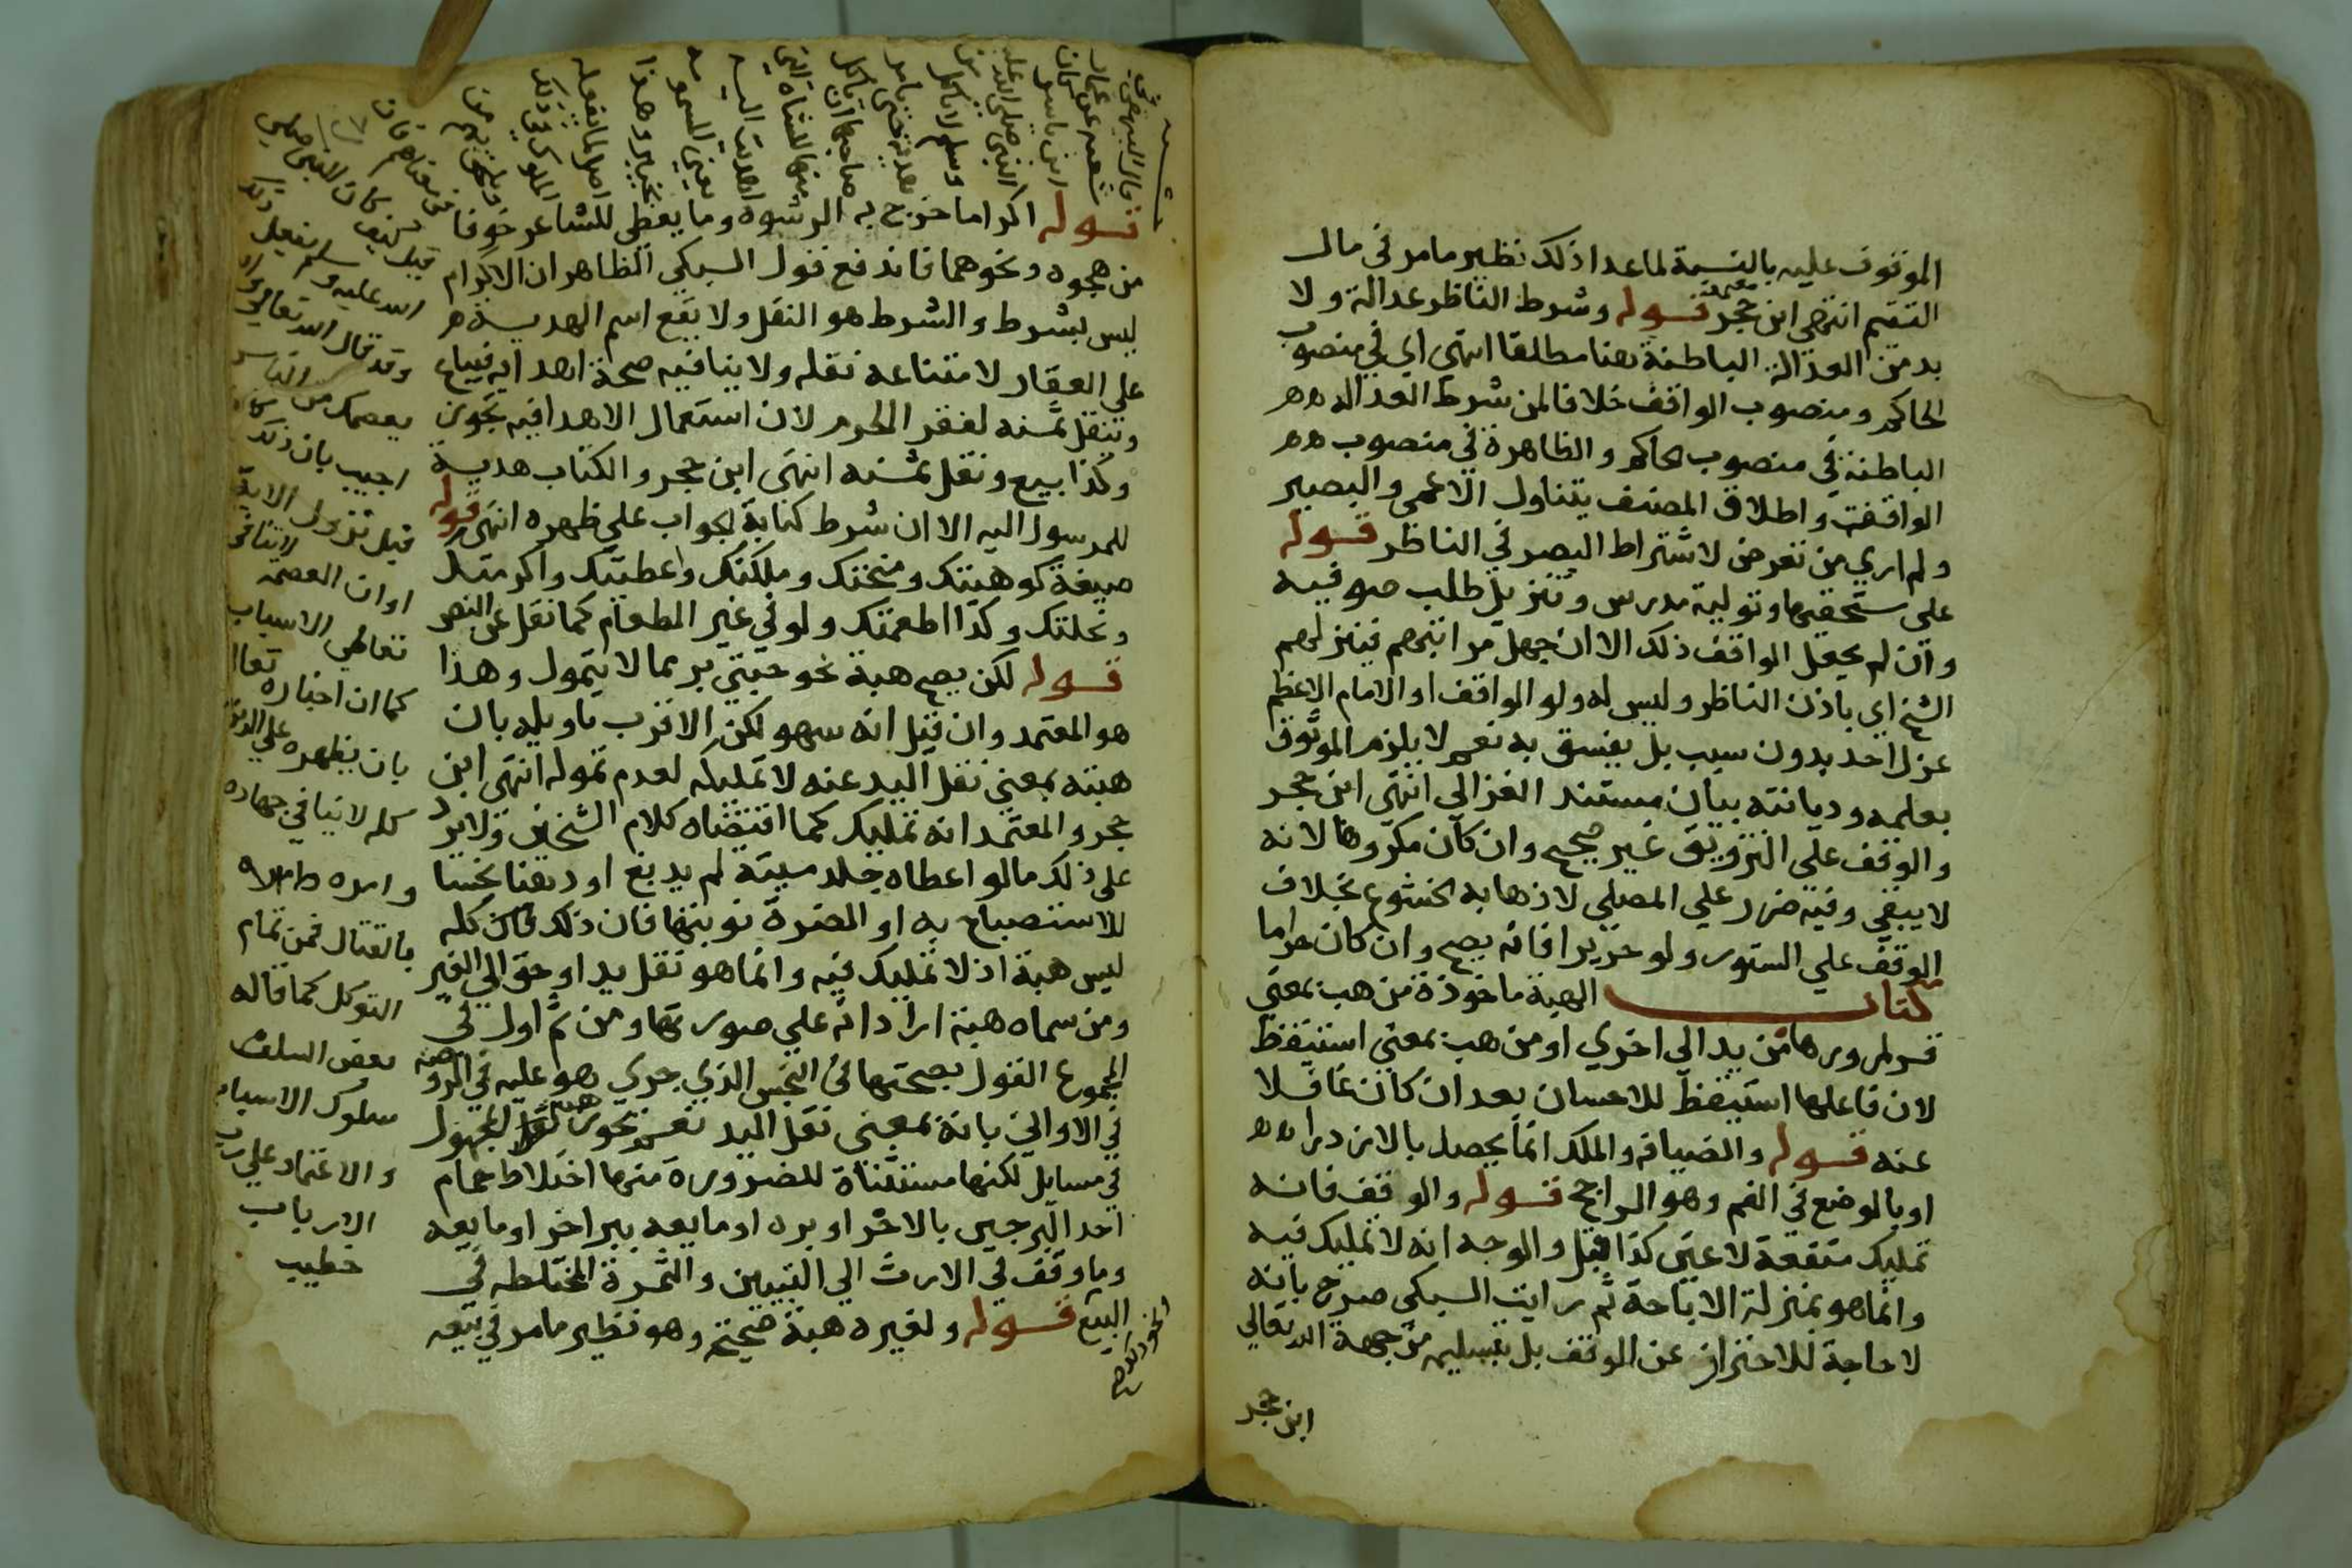 الموقوف عليه بالنسبة لما عدا ذلك نظير ما مر في مال
اليتيم انتهى ابن حجر قوله وشرط الناظر عدالة ولا
بد من العدالة الباطنة هنا مطلقا انتهى اي في منصوب
الحاكم ومنصوب الواقف خلافا لمن شرط العدالة
الباطنة في منصوب الحاكم والظاهرة في منصوب
الواقف واطلاق المصنف يتناول الاعمى والبصير
ولم ار من تعرض لاشتراط البصر في الناظر قوله
على مستحقيها وتولية مدرس وتنزيل طلب صوفيه
وان لم يجعل الواقف ذلك الا ان جهل مراتبهم فينزلهم
الشيخ اي باذن الناظر وليس له ولو الواقف او الامام الاعظم
عزل احد بدون سبب بل يفسق به نعم لا يلزم الموثوق
بعلمه وديانته بيان مستند الغزالي انتهى ابن حجر
والوقف على التزويق غير صحيح وان كان مكروها لانه
لا يبقى وفيه ضرر على المصلي لاذهابه الخشوع بخلاف
الوقف على الستور ولو حريرا فانه يصح وان كان حراما
كتاب الهبة ماخوذة من هب بمعنى
مر لمرورها من يد الى اخرى او من هب بمعنى استيقظ
لان فاعلها استيقظ للاحسان بعد ان كان غافلا
عنه قوله والضيافة والملك انما يحصل بالازدراد
او بالوضع في الفم وهو الراجح قوله والوقف فانه
تمليك منفعة لا عين كذا قيل والوجه انه لا تمليك فيه
وانما هو بمنزلة الاباحة ثم رايت السبكي صرح بانه
لا حاجة للاحتراز عن الوقف بل بتسليمه من جهة الله تعالى
ابن حجر
قوله اكراما خرج به الرشوة وما يعطى للشاعر خوفا
من هجوه ونحوهما فاندفع قول السبكي الظاهر ان الاكرام
ليس بشرط والشرط هو النقل ولا يقع اسم الهدية
على العقار لامتناعه نقله ولا ينافيه صحة اهدايه فيباع
وينقل ثمنه لفقر الحرم لان استعمال الاهدا فيه تجوز
وكذا بيع ونقل ثمنه انتهى ابن حجر والكتاب هدية
للمرسول اليه الا ان شرط كتابة الجواب على ظهره انتهى قوله
صيغة كوهبتك ومنحتك وملكتك واعطيتك واكرمتك
ونحلتك وكذا اطعمتك ولو في غير المطعام كما نقل عن النص
قوله لكن يصح هبة نحو حبتي بر مما لا يتمول وهذا
هو المعتمد وان قيل انه سهو لكن الاقرب تاويله بان
هبته بمعنى نقل اليد عنه لا تمليكه لعدم تموله انتهى ابن
حجر والمعتمد انه تمليك كما اقتضاه كلام الشيخين ولا يرد
على ذلك ما لو اعطاه جلد ميتة لم يدبغ او دهنا نجسا
للاستصباح به او المضرة نوبتها فان ذلك كله
ليس هبة اذ لا تمليك فيه وانما هو نقل يد او حق الى الغير
ومن سماه هبة اراد انه على صورتها ومن ثم اول في
المجموع القول بصحتها في النجس الذي جرى هو عليه في الروضة
في الاواني بانه بمعنى نقل اليد نعم تجوز هبة المجهول
في مسايل لكنها مستثناة للضرورة منها اختلاط حمام
احد البرجين بالاخر او بره او مايعه ببر اخر او مايعه
وما وقف في الارث الى التبيين والثمرة المختلطة في
البيع قوله ولغيره هبة صحيحة وهو نظير ما مر في بيعه
قال البيهقي
ابن ياسر
النبي صلى الله عليه
وسلم لا ياكل من
هدية حتى يامر
صاحبها ان ياكل
منها للشاة التي
اهديت اليه
يعني المسمومة
بخيبر وهذا
اصل لما يفعله
الملوك في ذلك
ويلحق بهم من
في معناهم فان
قيل كيف كان النبي صلى
الله عليه وسلم يفعل ذلك
وقد قال الله تعالى والله
يعصمك من الناس
اجيب بان ذلك كان
قبل نزول الاية
او ان العصمة لا تنافي
تعاطي الاسباب
كما ان اخباره تعالى
بان يظهره على الدين
كله لا ينافي جهاده
وامره
بالقتال فمن تمام
التوكل كما قاله
بعض السلف
سلوك الاسباب
والاعتماد على رب
الارباب
خطيب